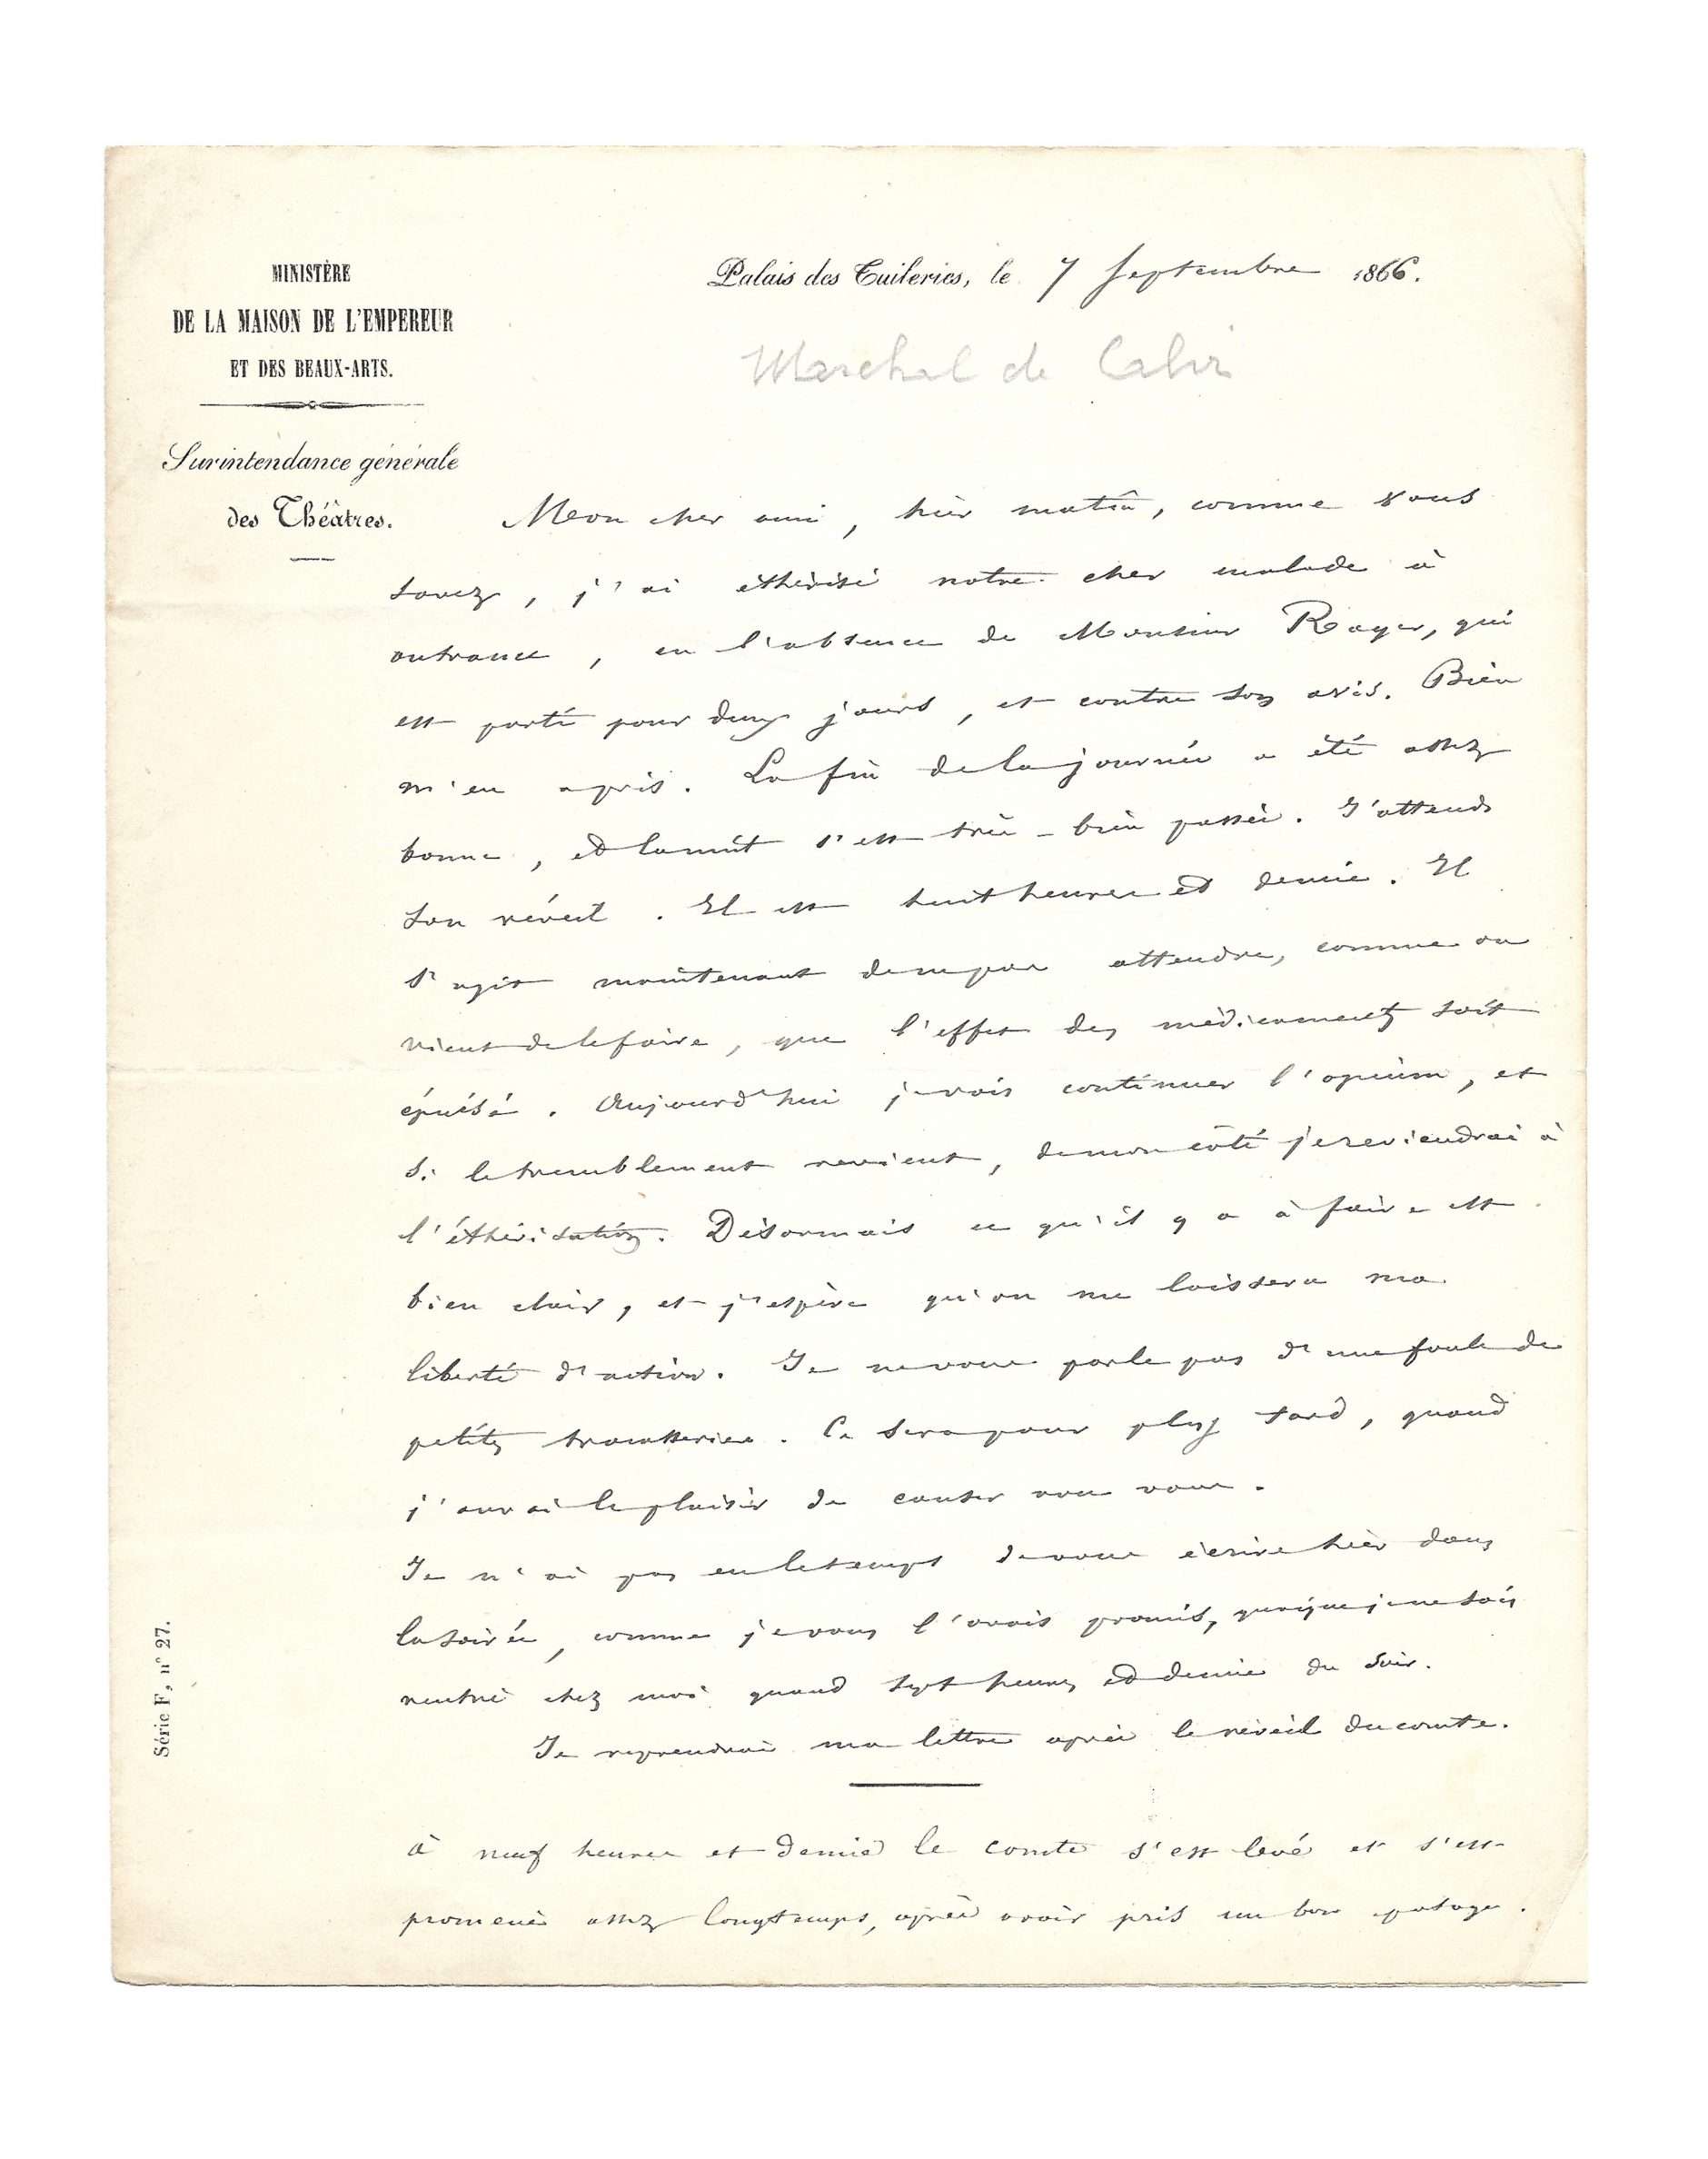 MINISTÈRE
DE LA MAISON DE L'EMPEREUR
ET DES BEAUX-ARTS.
Surintendance générale
des Théâtres.
Palais des Tuileries, le 7 Septembre 1866.
Marchal de Calvi
Mon cher ami, hier matin, comme vous
savez, j'ai éthérisé notre cher malade à
outrance, en l'absence de Monsieur Rayer, qui
est parti pour deux jours, et contre son avis. Bien
m'en a pris. La fin de la journée a été assez
bonne, et la nuit s'est très-bien passée. J'attends
son réveil. Il est huit heures et demie. Il
s'agit maintenant de ne pas attendre, comme on
vient de le faire, que l'effet des médicaments soit
épuisé. Aujourd'hui je vais continuer l'opium, et
si le tremblement revient, de mon côté je reviendrai à
l'éthérisation. Désormais ce qu'il y a à faire est
bien clair, et j'espère qu'on me laissera ma
liberté d'action. Je ne vous parle pas d'une foule de
petites tracasseries. Ce sera pour plus tard, quand
j'aurai le plaisir de causer avec vous.
Je n'ai pas eu le temps de vous écrire hier dans
la soirée, comme je vous l'avais promis, quoique je ne sois
rentré chez moi quand sept heures et demie du soir.
Je reprendrai ma lettre après le réveil du comte.
à neuf heures et demie le comte s'est levé et s'est
promené assez longtemps, après avoir pris un bon potage.
Série F, n° 27.